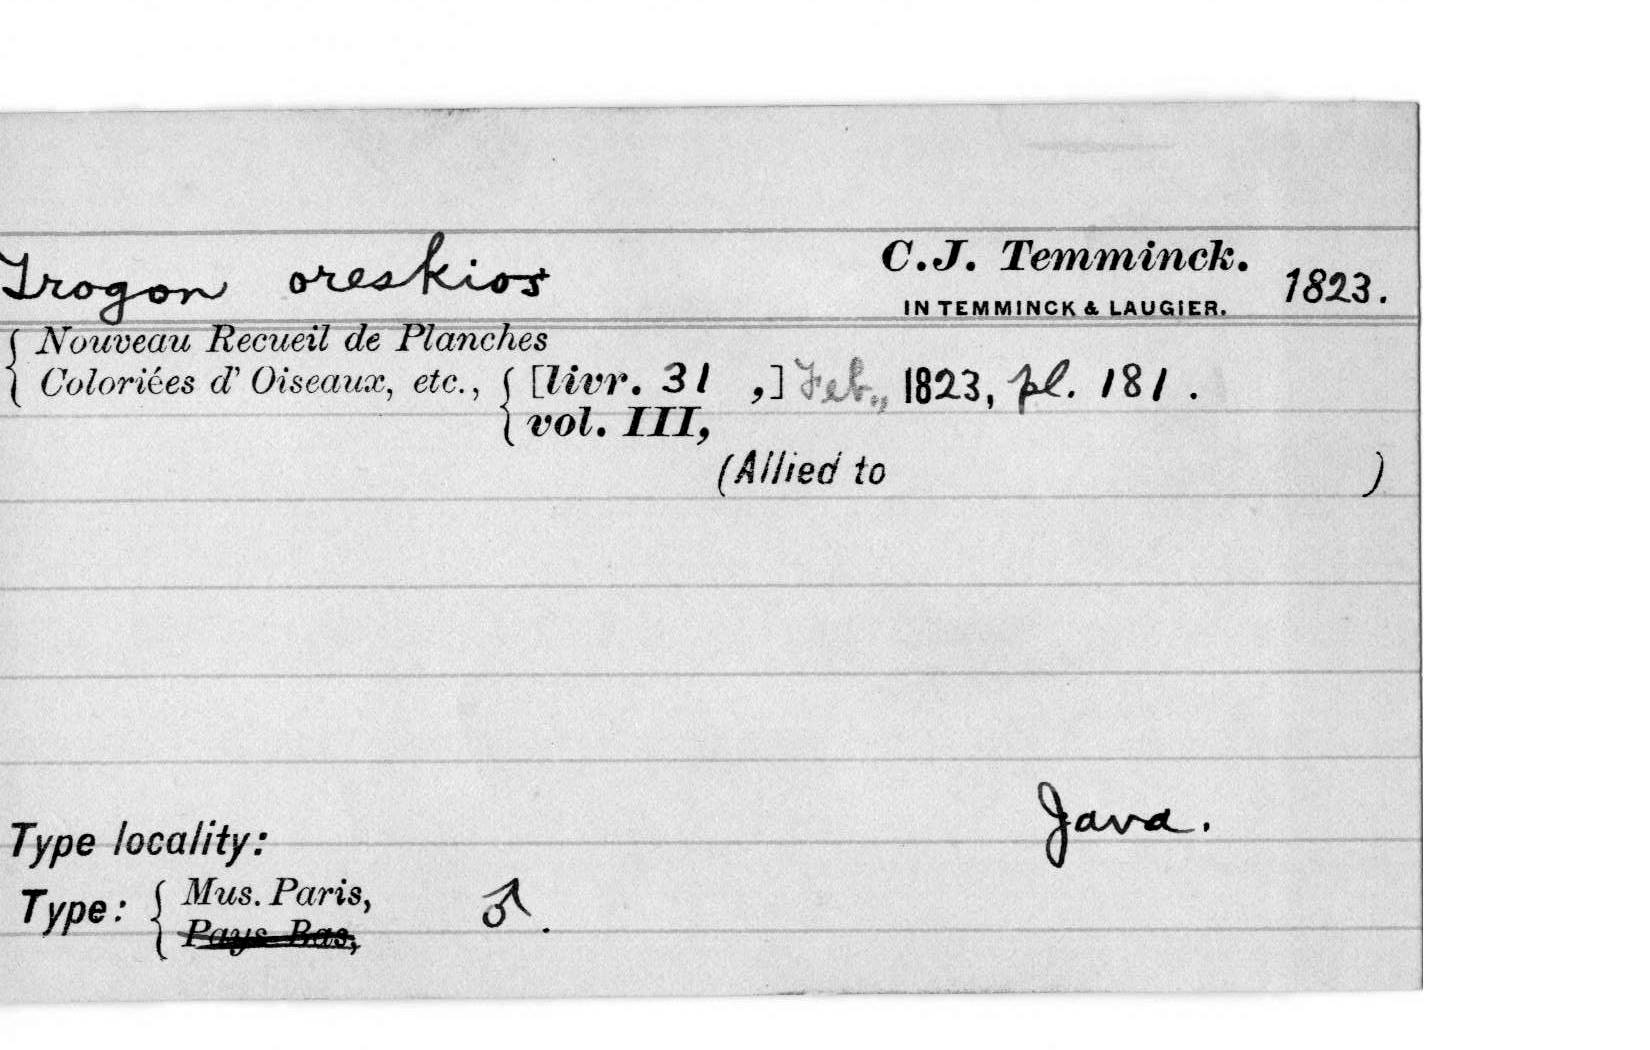 Trogon oreskios C.J. Temminck. 1823.
IN TEMMINCK & LAUGIER.
Nouveau Recueil de Planches
Coloriées d' Oiseaux, etc., [livr. 31 ,] Feb., 1823, pl. 181.
vol. III,
(Allied to )
Java.
Type locality:
Type: Mus. Paris, ♂.
Pays-Bas,